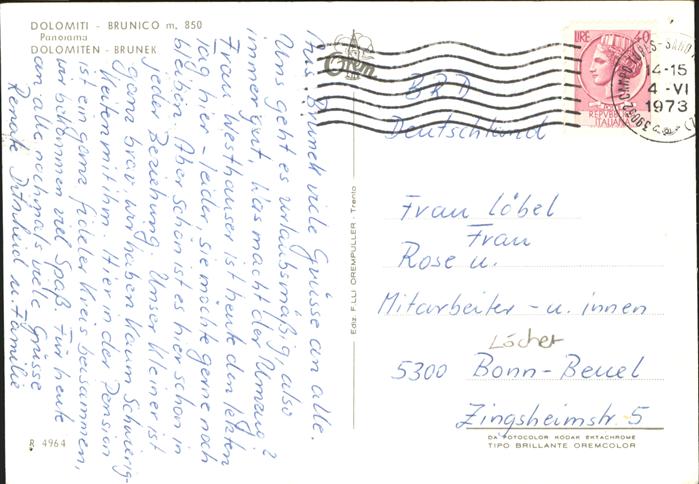 DOLOMITI - BRUNICO m. 850
Panorama
DOLOMITEN - BRUNEK
Aus Brunek viele Grüsse an alle.
Uns geht es urlaubsmäßig, also
immer gut, was macht der Umzug?
Frau Westhauser ist heute den letzten
Tag hier - leider, sie möchte gerne noch
bleiben. Aber schön ist es hier schon in
jede Beziehung. Unser Kleiner ist
ganz brav wir haben kaum Schwierig-
keiten mit ihm. Hier in der Pension
ist ein ganz fideler Kreis beisammen,
wir bekommen viel Spaß. Für heute
an alle nochmals viele Grüsse
Renate u. Familie
R 4964
Orem
Ediz. F.LLI OREMPULLER - Trento
LIRE 40
REPVBBLICA
ITALIANA
14-15
4 - VI
1973
BRD
Deutschland
Frau Löbel
Frau
Rose u.
Mitarbeiter - u. innen
Löcher
5300 Bonn-Beuel
Zingsheimstr. 5
DA FOTOCOLOR KODAK EKTACHROME
TIPO BRILLANTE OREMCOLOR